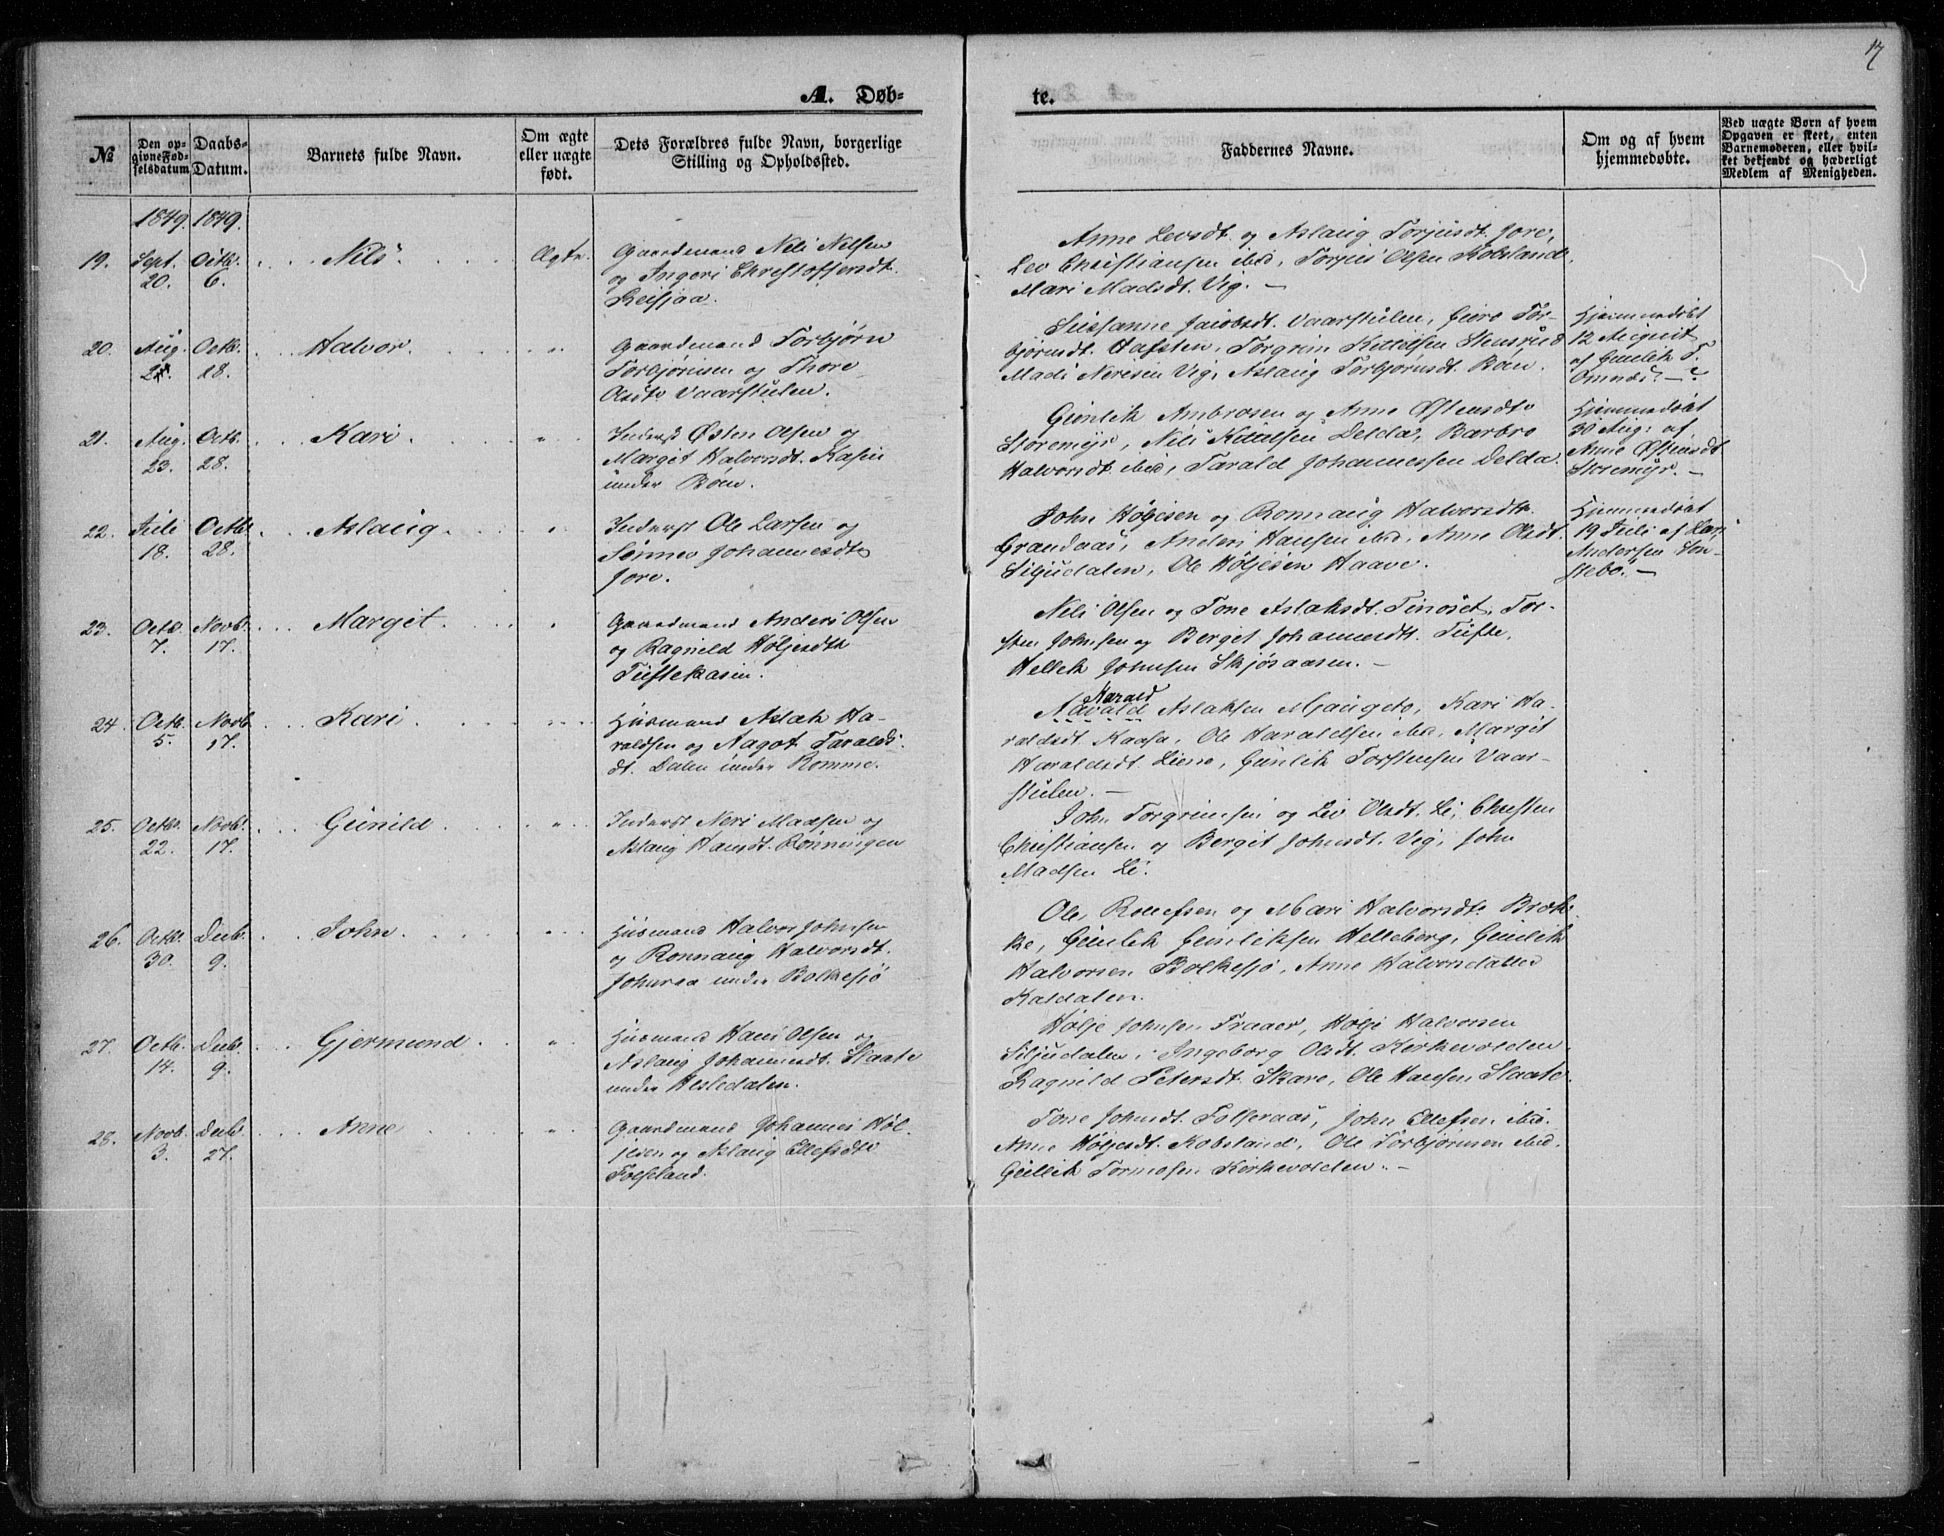 17
A. Døb-
te.
№
Den op-
givneFød-
selsdatum
Daabs-
Datum.
Barnets fulde Navn.
Om ægte
eller uægte
født.
Dets Forældres fulde Navn, borgerlige
Stilling og Opholdssted.
Faddernes Navne.
Om og af hvem
hjemmedøbte.
Ved uægte Børn af hvem
Opgaven er skeet, enten
Barnemoderen, eller hvil-
ket bekjendt og hæderligt
Medlem af Menigheden.
1849. 1849.
19. Sept. Octb. Nils Ægte Gaardmand Nils Nilsen
20. 6. og Ingeri Christoffersdt.
Reisjaa.
Anne Levsdt. og Aslaug Torjusdt. Jore,
Lev Christiansen ibid, Torjus Olsen Kobsland
Mari Madsdt. Vig. —
20. Aug. Octb. Halvor Gaardmand Torbjørn
18. Torbjörnsen og Thore
Olsdt. Vaarstulen.
Sussanne Jacobsdt. Vaarstulen, Gura Tor-
bjørnsdt. Hafsten, Torgrim Kittilsen Stensrud
Mads Nerisen Vig, Aslaug Torbjørnsdt. Böen.
Hjemmedøbt
12 August
af Gunlik T.
21. Aug. Octb. Kari Inderst Østen Olsen og
23. 28. Margit Halvorsdt. Kasin
under Böen.
Gunlik Ambrosen og Anne Østensdt.
Storemyr, Nils Kittilsen Delda, Barbro
Halvorsdt. ibid, Tarald Johannessen Delda.
Hjemmedøbt
30 Aug: af
Anne Østensdt
Storemyr. —
22. Juli Octb. Aslaug Inderst Ole Larsen og
18. 28. Johannesdt.
Jore.
John Høljesen og Ronnaug Halvorsdt.
Grandaas, Anders Hansen ibid, Anne Olsdt.
Siljudalen, Ole Höljesen Haave.
Hjemmedøbt
19 Juli af Lars
Andersen
23. Octb. Novb. Margit Gaardmand Anders Olsen
7. 17. og Ragnild Höljesdt.
Tuftekasin.
Nils Olsen og Tone Aslaksdt. Tinöset, Tor-
sten Johnsen og Bergit Johannesdt. Tufte,
Hellek Johnsen Skjösaasen. —
24. Octb. Novb. Kari Husmand Aslak Ha-
5. 17. raldsen og Aagot Taralds-
dt. Dalen under Romme.
Harald
Aslaksen Mjaugeto, Kari Ha-
raldsdt. Kaasa, Ole Haraldsen ibid, Margit
Haraldsdt. Liene, Gunlik Torstensen Vaar-
stulen. —
25. Octb. Novb. Gunild Inderst Neri Madsen og
22. 17. Aslaug Hansdt. Rönningen
John Torgrimsen og Liv Olsdt. Li, Christen
Christiansen og Bergit Johnsdt. Vig, John
Madsen Li.
26. Octb. Decb. John Husmand Halvor Johnsen
30. 9. og Ronnaug Halvorsdt.
Johnraa under Bolkesjö
Ole Rollefsen og Mari Halvorsdt. Bræk-
ke, Gunlik Gunliksen Helleberg, Gunlik
Halvorsen Bolkesjö, Anne Halvorsdatter
Kaldalen.
27. Octb. Decb. Gjermund Husmand Hans Olsen og
14. 9. Aslaug Johannesdt. Slaate
under Hesledalen.
Hølje Johnsen Traaer, Hølje Halvorsen
Siljudalen, Ingeborg Olsdt. Kirkevolden
Ragnild Petersdt. Skare, Ole Hansen Slaate.
28. Novb. Decb. Anne Gaardmand Johannes Höl-
3. 27. jesen og Aslaug Ellefsdt.
Folseland.
Tone Johnsdt. Folseraas, John Ellefsen ibid.
Anne Höljesdt. Kobsland, Ole Torbjörnsen ibid.
Gullik Tormosen Kirkevolden. —